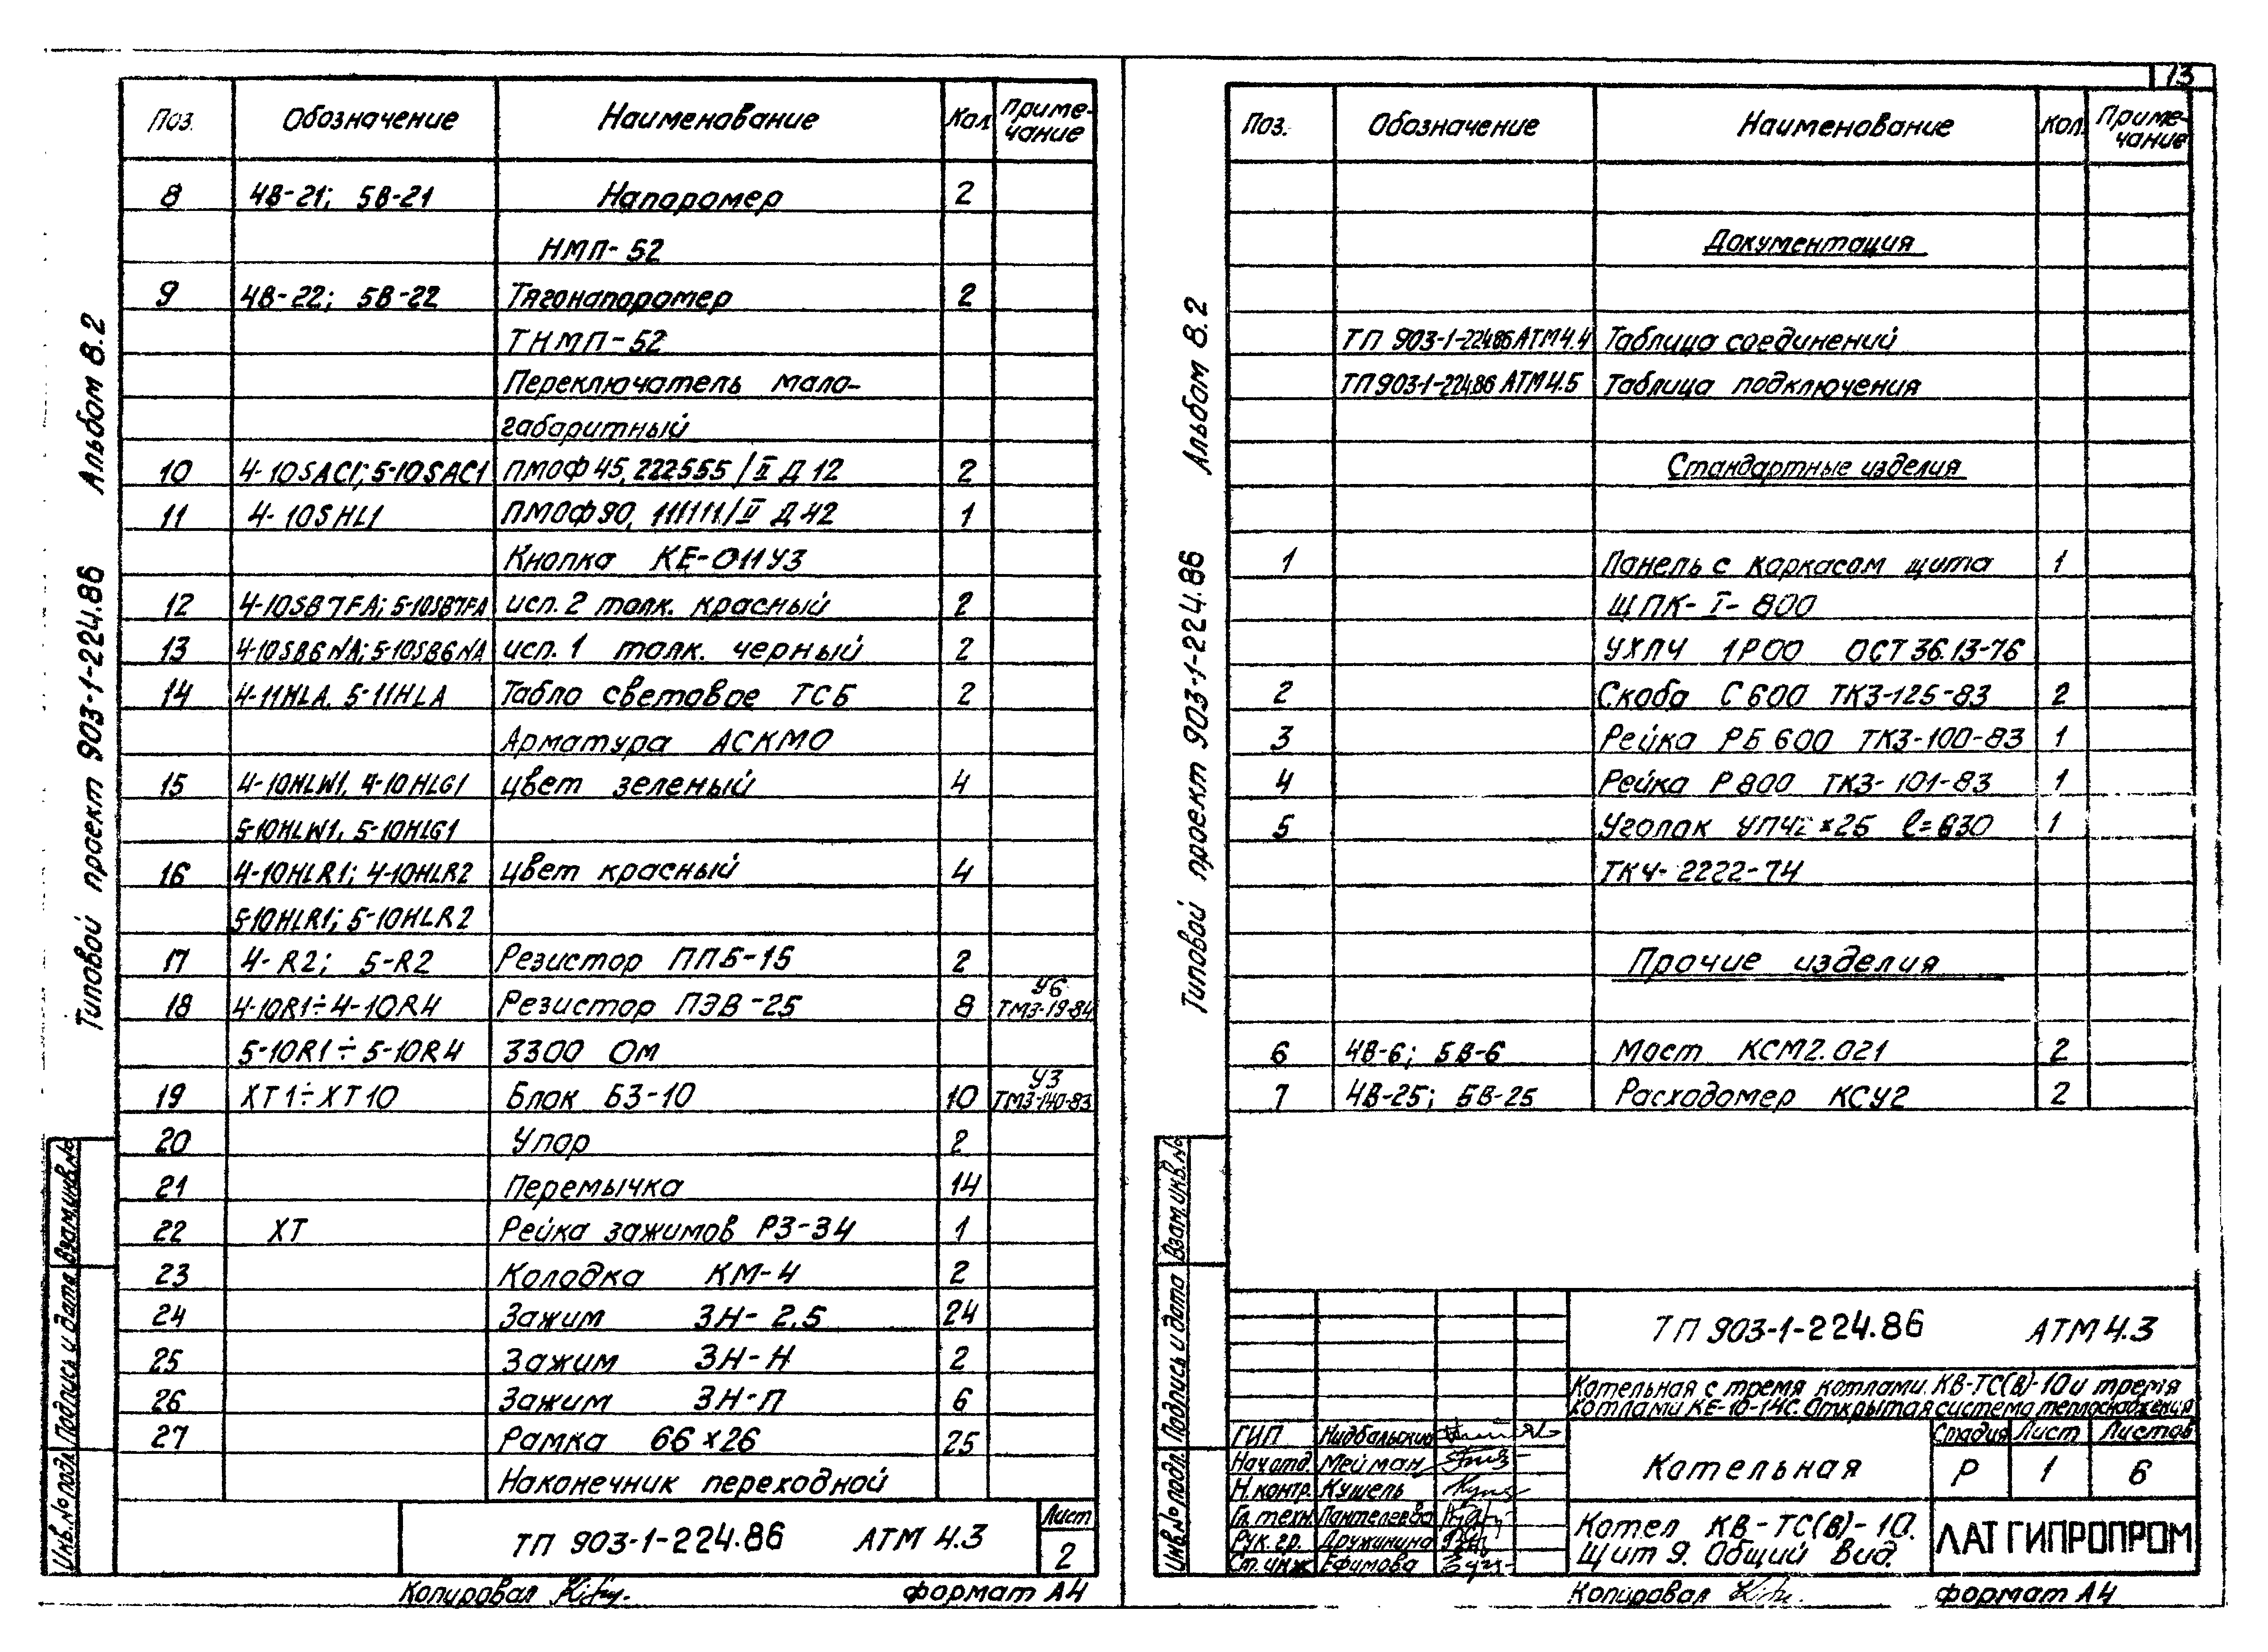 Альбом 8.2
Типовой проект 903-1-224.86
Поз. Обозначение Наименование Кол Приме-
чание
8 4В-21; 5В-21 Напоромер 2
НМП-52
9 4В-22; 5В-22 Тягонапоромер 2
ТНМП-52
Переключатель мало-
габаритный
10 4-10SAC1; 5-10SAC1 ПМОФ 45, 222555/II Д 12 2
11 4-10SHL1 ПМОФ 90, 111111/II Д 42 1
Кнопка КЕ-011У3
12 4-10SB7FA; 5-10SB7FA исп. 2 толк. красный 2
13 4-10SB6NA; 5-10SB6NA исп. 1 толк. черный 2
14 4-11HLA, 5-11HLA Табло световое ТСБ 2
Арматура АСКМО
15 4-10HLW1, 4-10HLG1 цвет зеленый 4
5-10HLW1, 5-10HLG1
16 4-10HLR1; 4-10HLR2 цвет красный 4
5-10HLR1; 5-10HLR2
17 4-R2; 5-R2 Резистор ППБ-15 2
18 4-10R1÷4-10R4 Резистор ПЭВ-25 8 У6
ТМ3-19-84
5-10R1÷5-10R4 3300 Ом
19 ХТ1÷ХТ10 Блок БЗ-10 10 У3
ТМ3-140-83
20 Упор 2
21 Перемычка 14
22 ХТ Рейка зажимов РЗ-34 1
23 Колодка КМ-4 2
24 Зажим ЗН-2,5 24
25 Зажим ЗН-Н 2
26 Зажим ЗН-П 6
27 Рамка 66×26 25
Наконечник переходной
ТП 903-1-224.86 АТМ 4.3
Лист
2
Копировал
формат А4
Инв. № подл. Подпись и дата Взам.инв.№
13
Альбом 8.2
Типовой проект 903-1-224.86
Поз. Обозначение Наименование Кол. Приме-
чание
Документация
ТП 903-1-224.86 АТМ4.4 Таблица соединений
ТП 903-1-224.86 АТМ4.5 Таблица подключения
Стандартные изделия
1 Панель с каркасом щита 1
ЩПК-I-800
УХЛ4 1Р00 ОСТ 36.13-76
2 Скоба С600 ТК3-125-83 2
3 Рейка РБ600 ТК3-100-83 1
4 Рейка Р800 ТК3-101-83 1
5 Уголок УП42×25 ℓ=630 1
ТК4-2222-74
Прочие изделия
6 4В-6; 5В-6 Мост КСМ2.021 2
7 4В-25; 5В-25 Расходомер КСУ2 2
ТП 903-1-224.86 АТМ 4.3
Котельная с тремя котлами КВ-ТС(В)-10 и тремя
котлами КЕ-10-14С. Открытая система теплоснабжения
ГИП Нидбальский
Нач отд. Мейман
Н.контр. Кушель
Гл. техн. Пантелеева
Рук. гр. Дружинина
Ст. инж Ефимова
Котельная
Стадия Лист Листов
Р 1 6
Котел КВ-ТС(В)-10.
Щит 9. Общий вид.
ЛАТГИПРОПРОМ
Копировал
формат А4
Инв. № подл. Подпись и дата Взам.инв.№